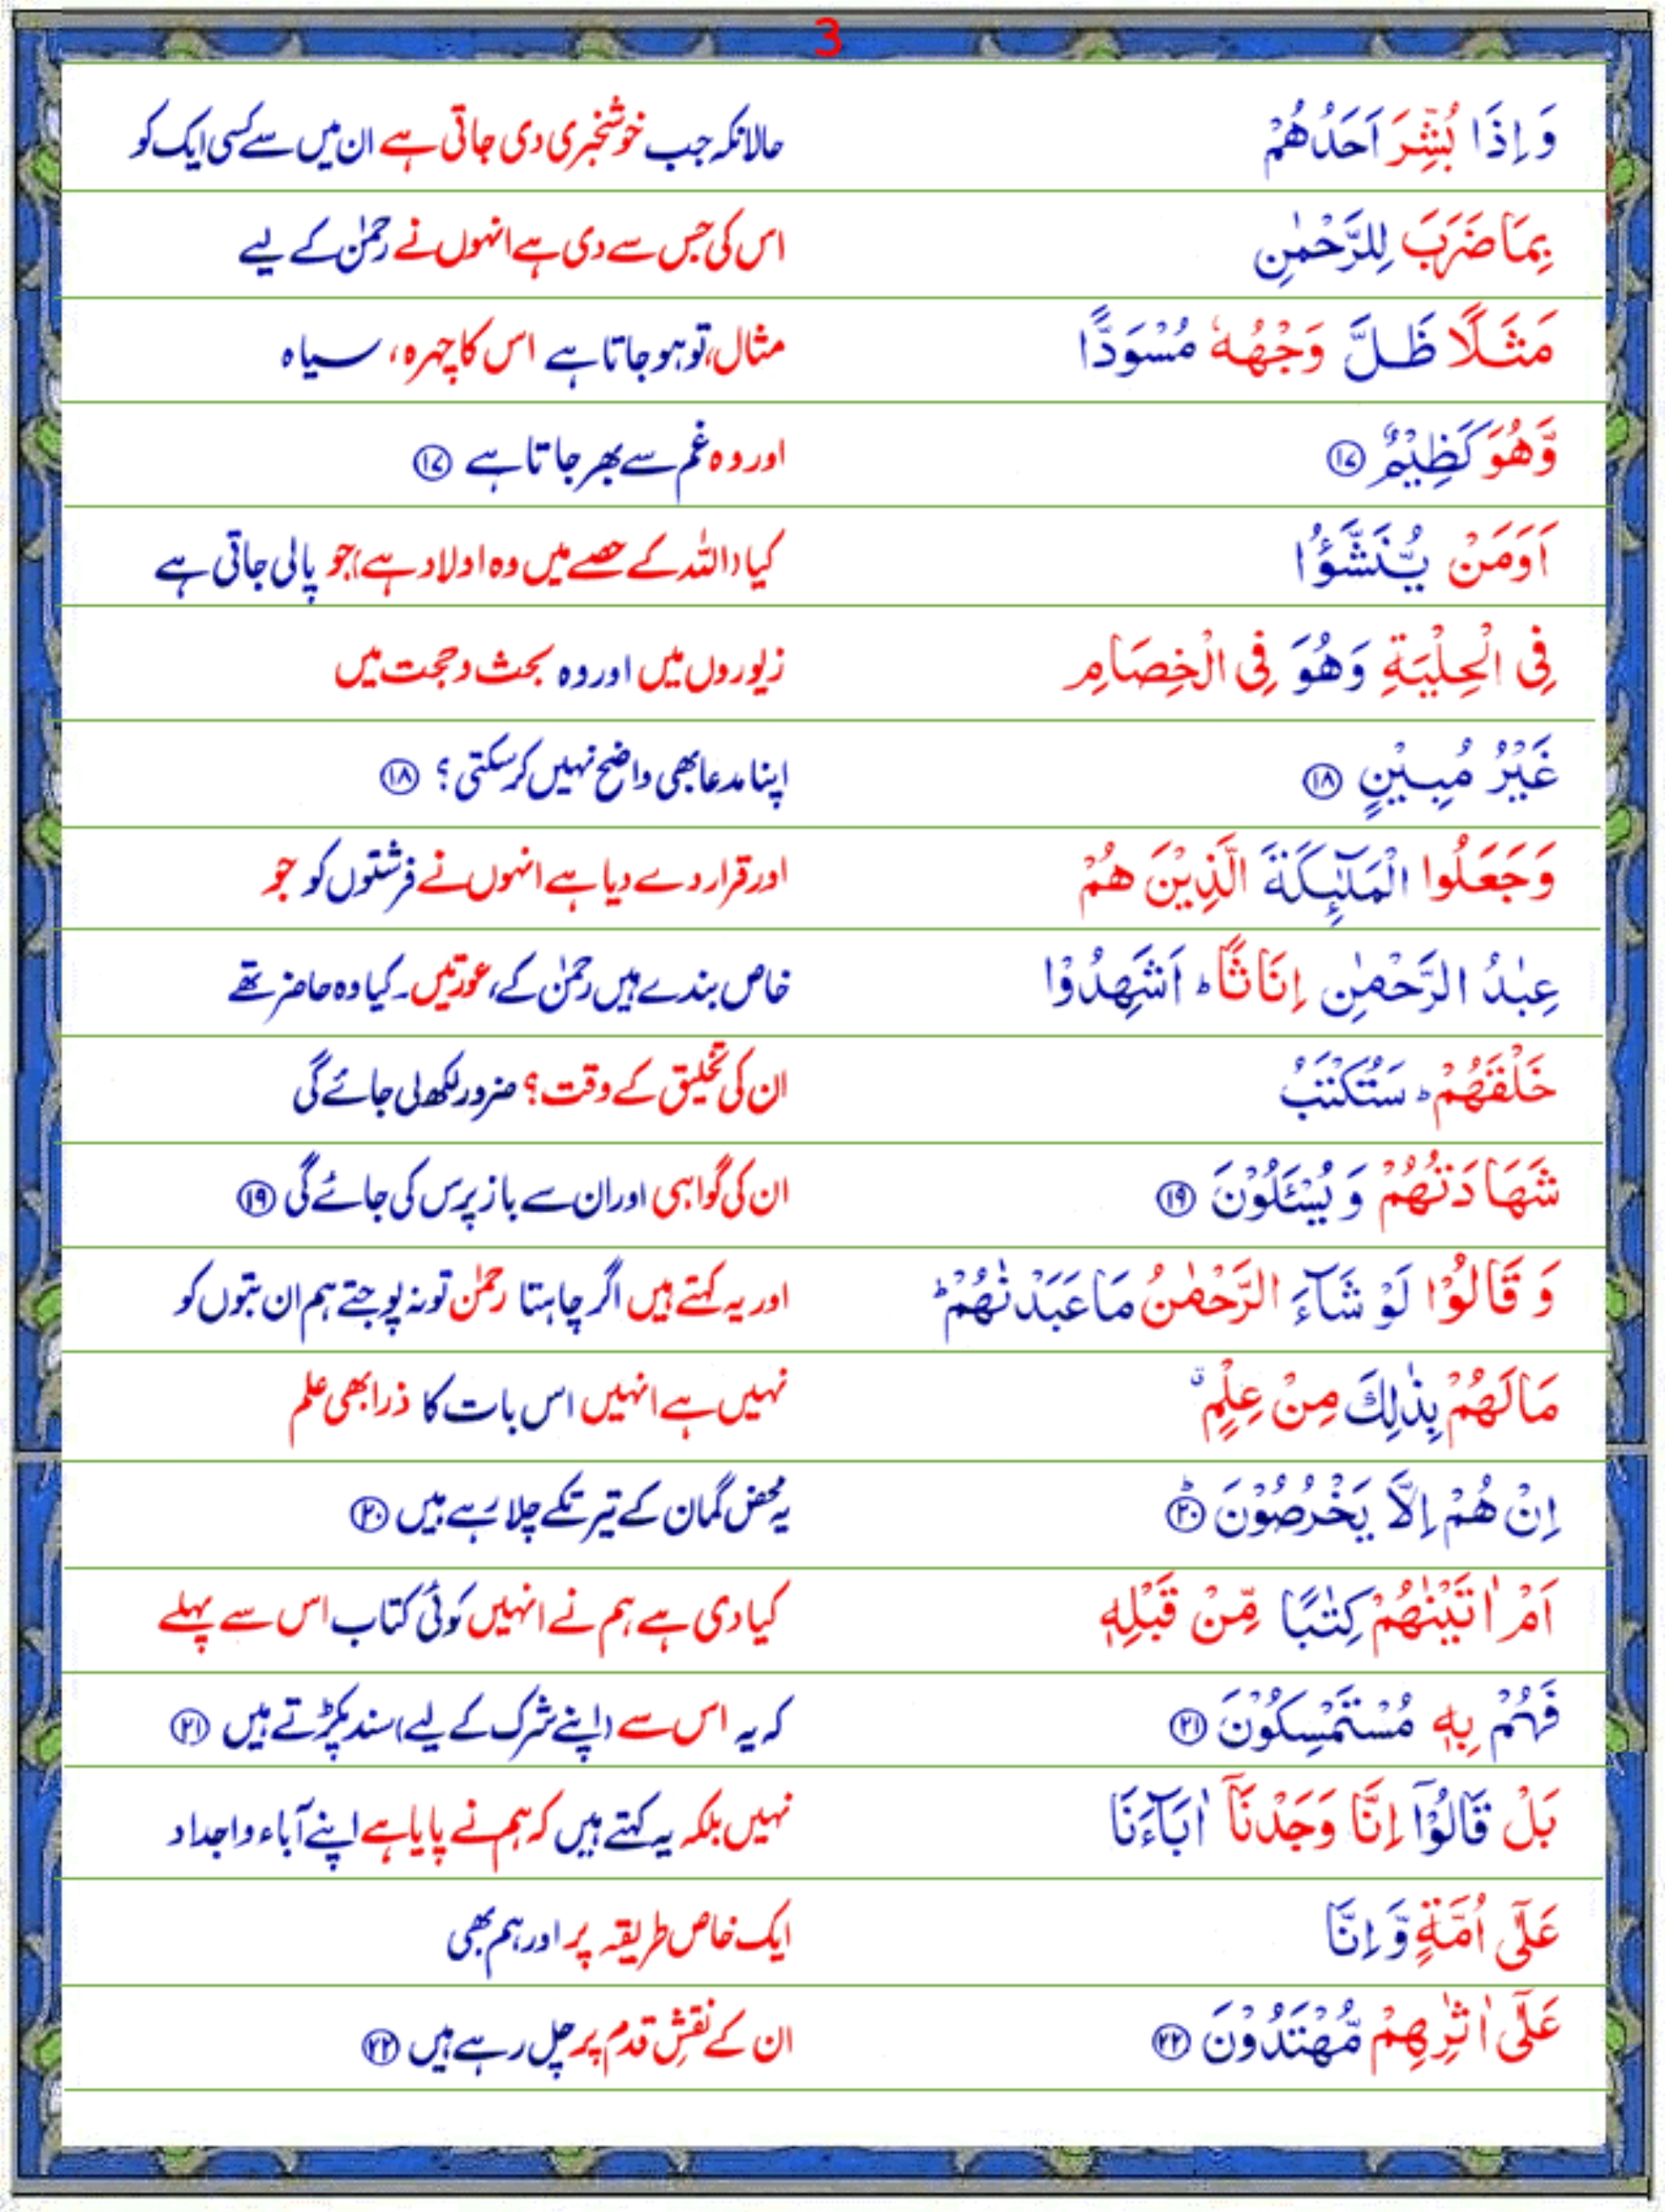 3
وَاِذَا بُشِّرَ اَحَدُهُمْ حالانکہ جب خوشخبری دی جاتی ہے ان میں سے کسی ایک کو
بِمَا ضَرَبَ لِلرَّحْمٰنِ اس کی جس سے دی ہے انہوں نے رحمٰن کے لیے
مَثَـلًا ظَـلَّ وَجْهُهٗ مُسْوَدًّا مثال، تو ہو جاتا ہے اس کا چہرہ، سیاہ
وَّهُوَ كَظِيْمٌ ⑰ اور وہ غم سے بھر جاتا ہے ⑰
اَوَمَنْ يُّنَشَّؤُا کیا (اللہ کے حصے میں وہ اولاد ہے) جو پالی جاتی ہے
فِى الْحِلْيَةِ وَهُوَ فِى الْخِصَامِ زیوروں میں اور وہ بحث و حجت میں
غَيْرُ مُبِيْنٍ ⑱ اپنا مدعا بھی واضح نہیں کر سکتی؟ ⑱
وَجَعَلُوا الْمَلٰٓئِكَةَ الَّذِيْنَ هُمْ اور قرار دے دیا ہے انہوں نے فرشتوں کو جو
عِبٰدُ الرَّحْمٰنِ اِنَاثًا ؕ اَشَهِدُوْا خاص بندے ہیں رحمٰن کے، عورتیں۔ کیا وہ حاضر تھے
خَلْقَهُمْ ؕ سَتُكْتَبُ ان کی تخلیق کے وقت؟ ضرور لکھ لی جائے گی
شَهَادَتُهُمْ وَ يُسْـَٔلُوْنَ ⑲ ان کی گواہی اور ان سے باز پرس کی جائے گی ⑲
وَ قَالُوْا لَوْ شَآءَ الرَّحْمٰنُ مَا عَبَدْنٰهُمْ ؕ اور یہ کہتے ہیں اگر چاہتا رحمٰن تو نہ پوجتے ہم ان بتوں کو
مَا لَهُمْ بِذٰلِكَ مِنْ عِلْمٍ ۗ نہیں ہے انہیں اس بات کا ذرا بھی علم
اِنْ هُمْ اِلَّا يَخْرُصُوْنَ ؕ ⑳ یہ محض گمان کے تیر تکے چلا رہے ہیں ⑳
اَمْ اٰتَيْنٰهُمْ كِتٰبًا مِّنْ قَبْلِهٖ کیا دی ہے ہم نے انہیں کوئی کتاب اس سے پہلے
فَهُمْ بِهٖ مُسْتَمْسِكُوْنَ ㉑ کہ یہ اس سے (اپنے شرک کے لیے) سند پکڑتے ہیں ㉑
بَلْ قَالُوْٓا اِنَّا وَجَدْنَآ اٰبَآءَنَا نہیں بلکہ یہ کہتے ہیں کہ ہم نے پایا ہے اپنے آباء و اجداد
عَلٰٓى اُمَّةٍ وَّ اِنَّا ایک خاص طریقہ پر اور ہم بھی
عَلٰٓى اٰثٰرِهِمْ مُّهْتَدُوْنَ ㉒ ان کے نقشِ قدم پر چل رہے ہیں ㉒